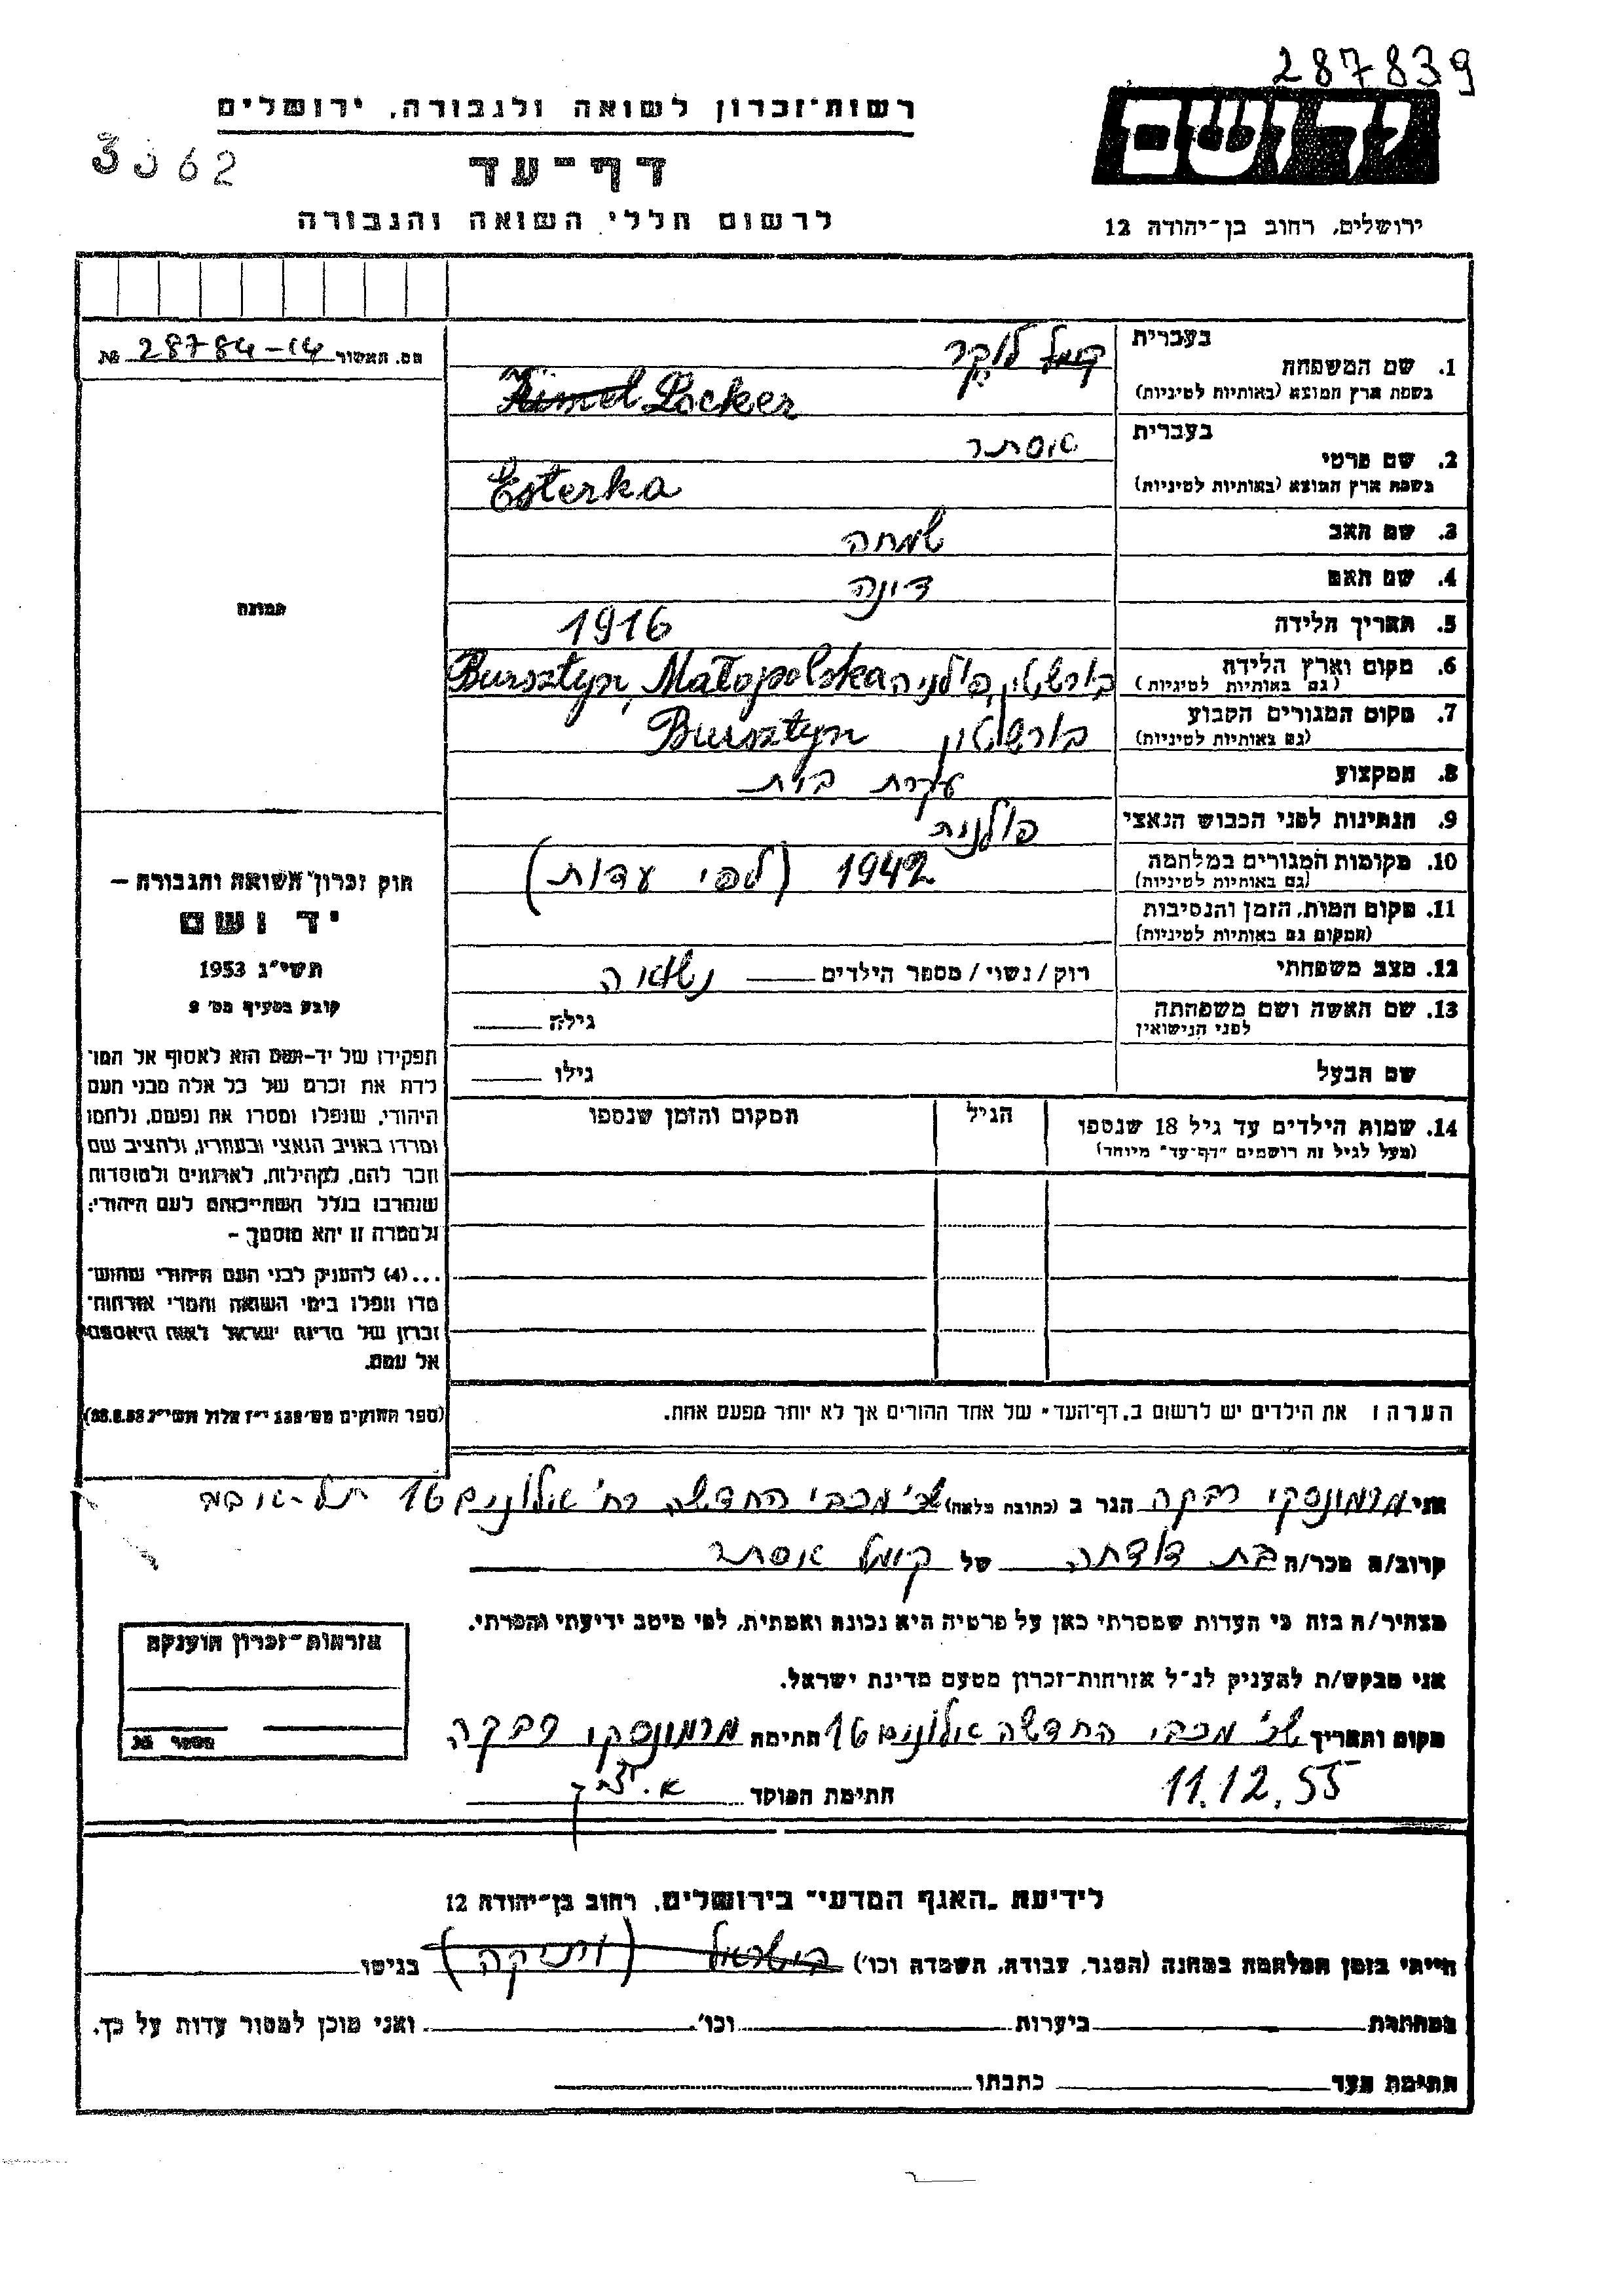 287839
רשות-זכרון לשואה ולגבורה, ירושלים
יד ושם
3062
דף-עד
לרשום חללי השואה והגבורה
ירושלים, רחוב בן-יהודה 12
מס. האשור 28784-14 №
תמונה
בעברית
1. שם המשפחה קימל לוקר
בשפת ארץ המוצא (באותיות לטיניות) Kimel Locker
בעברית
2. שם פרטי אסתר
בשפת ארץ המוצא (באותיות לטיניות) Esterka
3. שם האב שמחה
4. שם האם דינה
5. תאריך הלידה 1916
6. מקום וארץ הלידה בורשטין, פולניה Bursztyn, Małopolska
(גם באותיות לטיניות)
7. מקום המגורים הקבוע בורשטין Bursztyn
(גם באותיות לטיניות)
8. המקצוע עקרת בית
9. הנתינות לפני הכבוש הנאצי פולנית
10. מקומות המגורים במלחמה 1942 (לפי עדות)
(גם באותיות לטיניות)
11. מקום המות, הזמן והנסיבות
(המקום גם באותיות לטיניות)
12. מצב משפחתי רוק/נשוי/מספר הילדים נשואה
13. שם האשה ושם משפחתה גילה
לפני הנישואין
שם הבעל גילו
14. שמות הילדים עד גיל 18 שנספו הגיל המקום והזמן שנספו
(מעל לגיל זה רושמים "דף-עד" מיוחד)
חוק זכרון השואה והגבורה –
יד ושם
תשי"ג 1953
קובע בסעיף מס׳ 2
תפקידו של יד-ושם הוא לאסוף אל המו־
לדת את זכרם של כל אלה מבני העם
היהודי, שנפלו ומסרו את נפשם, נלחמו
ומרדו באויב הנאצי ובעוזריו, ולהציב שם
וזכר להם, לקהילות, לארגונים ולמוסדות
שנחרבו בגלל השתייכותם לעם היהודי;
ולמטרה זו יהא מוסמך –
...(4) להעניק לבני העם היהודי שהוש־
מדו ונפלו בימי השואה והמרי אזרחות־
זכרון של מדינת ישראל לאות היאספם
אל עמם.
(ספר החוקים מס׳ 132 י"ז אלול תשי"ג 28.8.53)
הערה: את הילדים יש לרשום ב"דף-העד" של אחד ההורים אך לא יותר מפעם אחת.
אני מרמונסקי רבקה הגר ב (כתובת מלאה) שכ׳ מכבי החדשה רח׳ אילונים 16 תל-אביב
קרוב/ה מכר/ה בת דודה של קימל אסתר
מצהיר/ה בזה כי העדות שמסרתי כאן על פרטיה היא נכונה ואמתית, לפי מיטב ידיעתי והכרתי.
אני מבקש/ת להעניק לנ"ל אזרחות-זכרון מטעם מדינת ישראל.
אזרחות-זכרון הוענקה
מספר №
מקום ותאריך שכ׳ מכבי החדשה אילונים 16 חתימה מרמונסקי רבקה
11.12.55 חתימת הפוקד
לידיעת "האגף המדעי" בירושלים, רחוב בן-יהודה 12
הייתי בזמן המלחמה במחנה (הסגר, עבודה, השמדה וכו׳) בישראל (ותיקה) בגיטו
במחתרת ביערות וכו׳ ואני מוכן למסור עדות על כך.
חתימת העד כתבתו